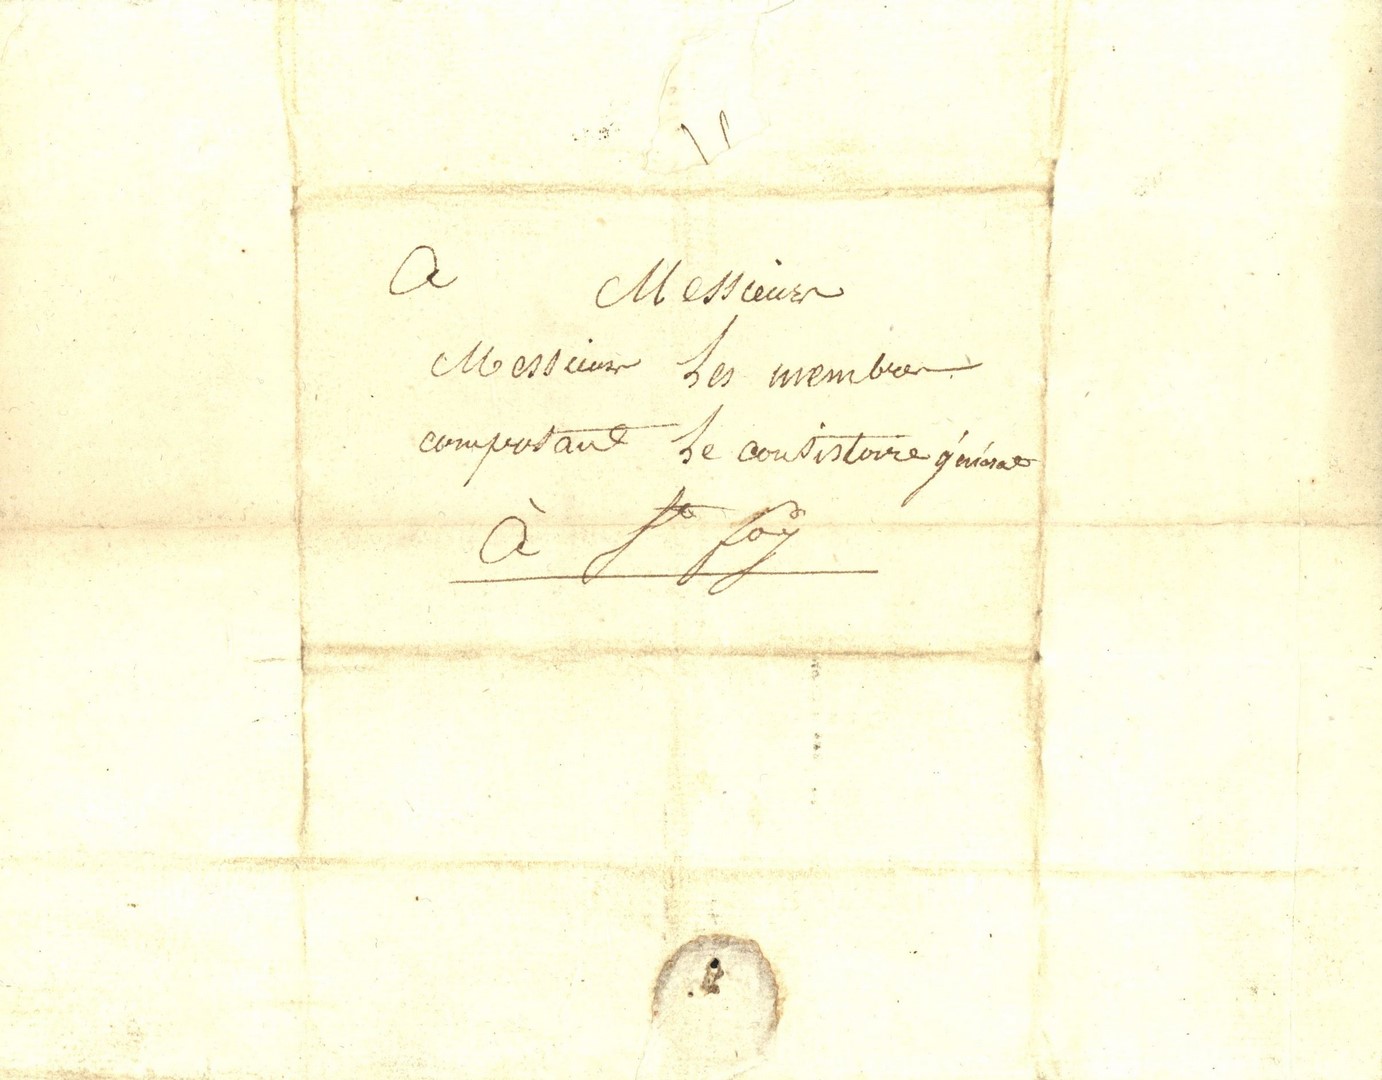 A Messieurs
Messieurs Les membres
composant Le consistoire général
À Ste foÿ